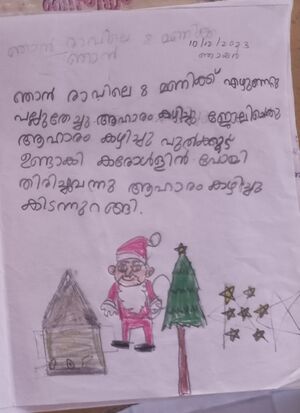 ഞാൻ രാവിലെ 8 മണിക്ക്
ഞാൻ
10/12/2023
ഞായർ
ഞാൻ രാവിലെ 8 മണിക്ക് എഴുന്നേറ്റു
പല്ലുതേച്ചു ആഹാരം കഴിച്ചു ജോലിചെയ്തു
ആഹാരം കഴിച്ചു പുൽക്കൂട്
ഉണ്ടാക്കി കരോൾളിന് പോയി
തിരിച്ചുവന്നു ആഹാരം കഴിച്ചു
കിടന്നുറങ്ങി.